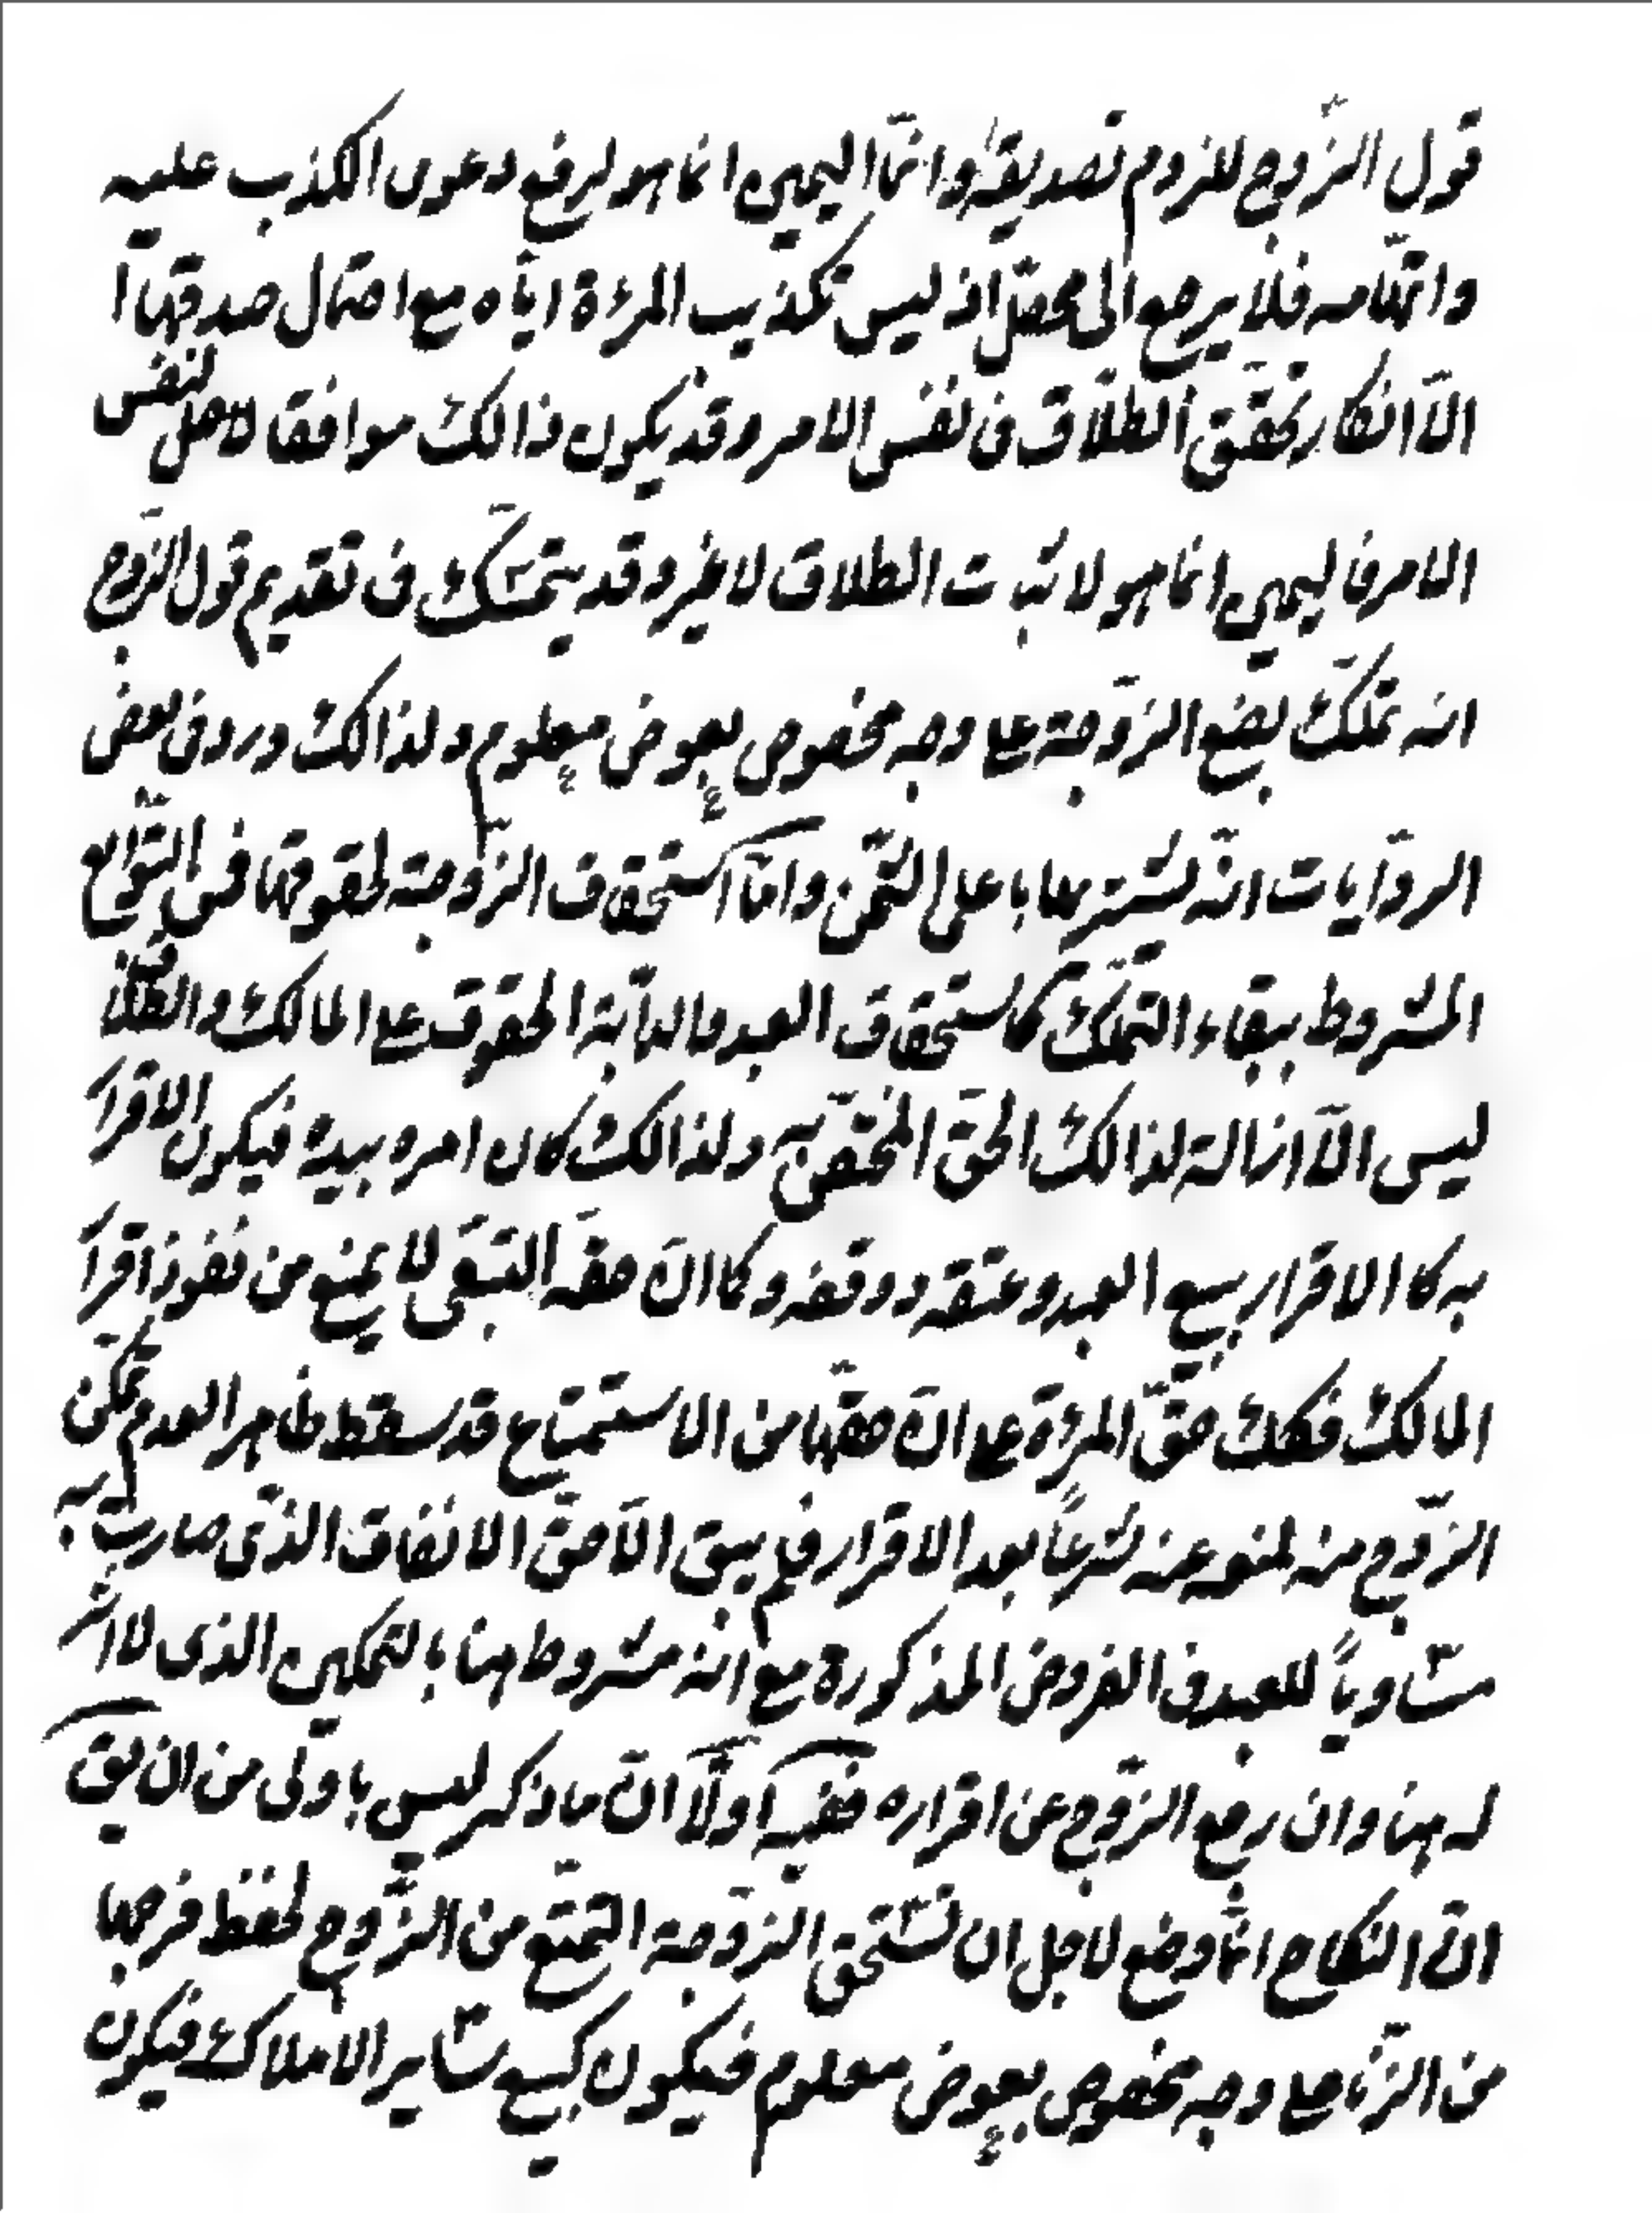 قول الزّوج للزوم تصديقه وامّا اليمين انما هو لرفع دعوى الكذب عليه
واتّهامه فلا يرجع الى محصّل اذ ليس تكذيب المرءة ايّاه مع احتمال صدقها
الّا انكار تحقّق الطلاق فى نفس الامر وقد يكون ذالك موافقا لاصل لنفس
الامر فاليمين انما هو لاثبات الطلاق لا غير وقد يتمسّك فى تقديم قول الزّوج
انه تملّك بضع الزّوجة على وجه مخصوص بعوض معلوم ولذالك ورد فى بعض
الروّايات انّه يشتريها با على الثّمن وامّا استحقاق الزّوجة لحقوقها فمن التّوابع
المشروط ببقاء التملّك كاستحقاق العبد والدابّة الحقوق على المالك والطلاق
ليس الّا ازالة لذالك الحقّ المختصّ به ولذالك كان امره بيده فيكون الاقرار
به كالاقرار ببيع العبد وعتقه ووقفه وكما انّ حقّه التبعى لا يمنع من نفوذ اقرار
المالك فكك حقّ المرءة على انّ حقّها من الاستمتاع قد سقط ظاهرا لعدم تمكّن
الزّوج منه لمنوعيّته شرعاً بعد الاقرار فلم يبق الّا حقّ الانفاق الذّى صارت به
مساوياً للعبد فى الفروض المذكورة مع انّه مشروط هنا بالتمكين الذى لا اثر
له هنا وان رجع الزّوج عن اقراره ففيه اولّا انّ ما ذكر ليس باولى من ان يق
انّ النكاح انّما وضع لاجل ان تستحق الزّوجة التمتّع من الزّوج لحفظ فرجها
من الزّنا على وجه مخصوص بعوض معلوم فيكون كبيع ساير الاملاك فيكون